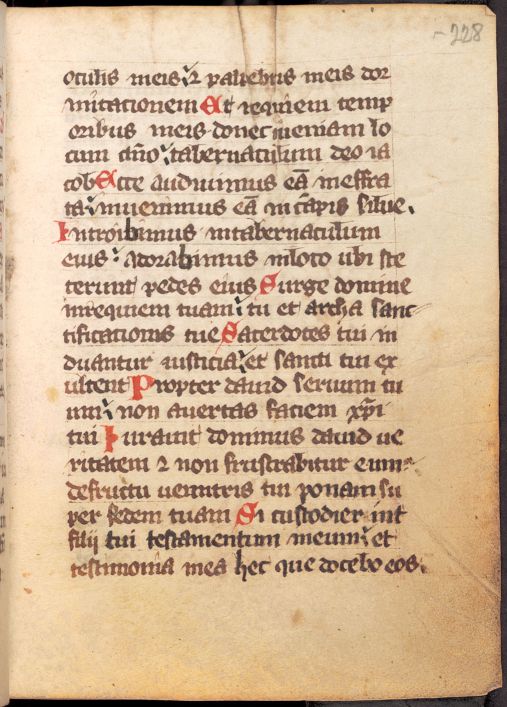 228
oculis meis ⁊ palpebris meis dor
mitationem Et requiem temp
oribus meis donec inveniam lo
cum dño tabernaculum deo ia
cob Ecce audivimus eã in effra
ta invenimus eã in cãpis silve.
Introibimus in tabernaculum
eius : Adorabimus in loco ubi ste
terunt pedes eius Surge domine
in requiem tuam : tu et archa sanc
tificationis tue Sacerdotes tui in
duantur iusticia et sancti tui ex
ultent Propter david servum tu
um : non avertas faciem xp̃i
tui Iuravit dominus david ve
ritatem ⁊ non frustrabitur eum
de fructu ventris tui ponam su
per sedem tuam Si custodierint
filij tui testamentum meum : et
testimonia mea hec que docebo eos.